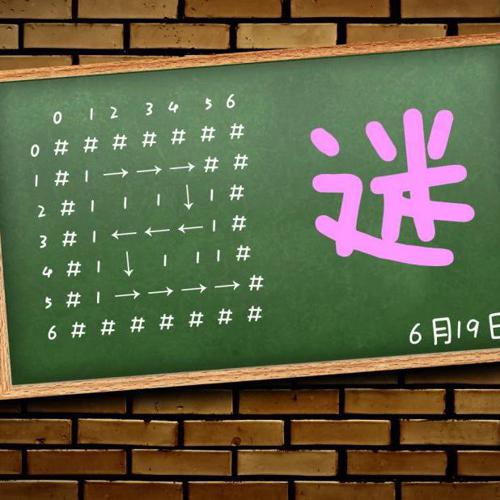 0 1 2 3 4 5 6
0 # # # # # # #
1 # 1 → → → # #
2 # 1 1 1 ↓ 1 #
3 # 1 ← ← ← 1 #
4 # 1 ↓ 1 1 1 #
5 # 1 → → → → #
6 # # # # # # #
迷
6月19日